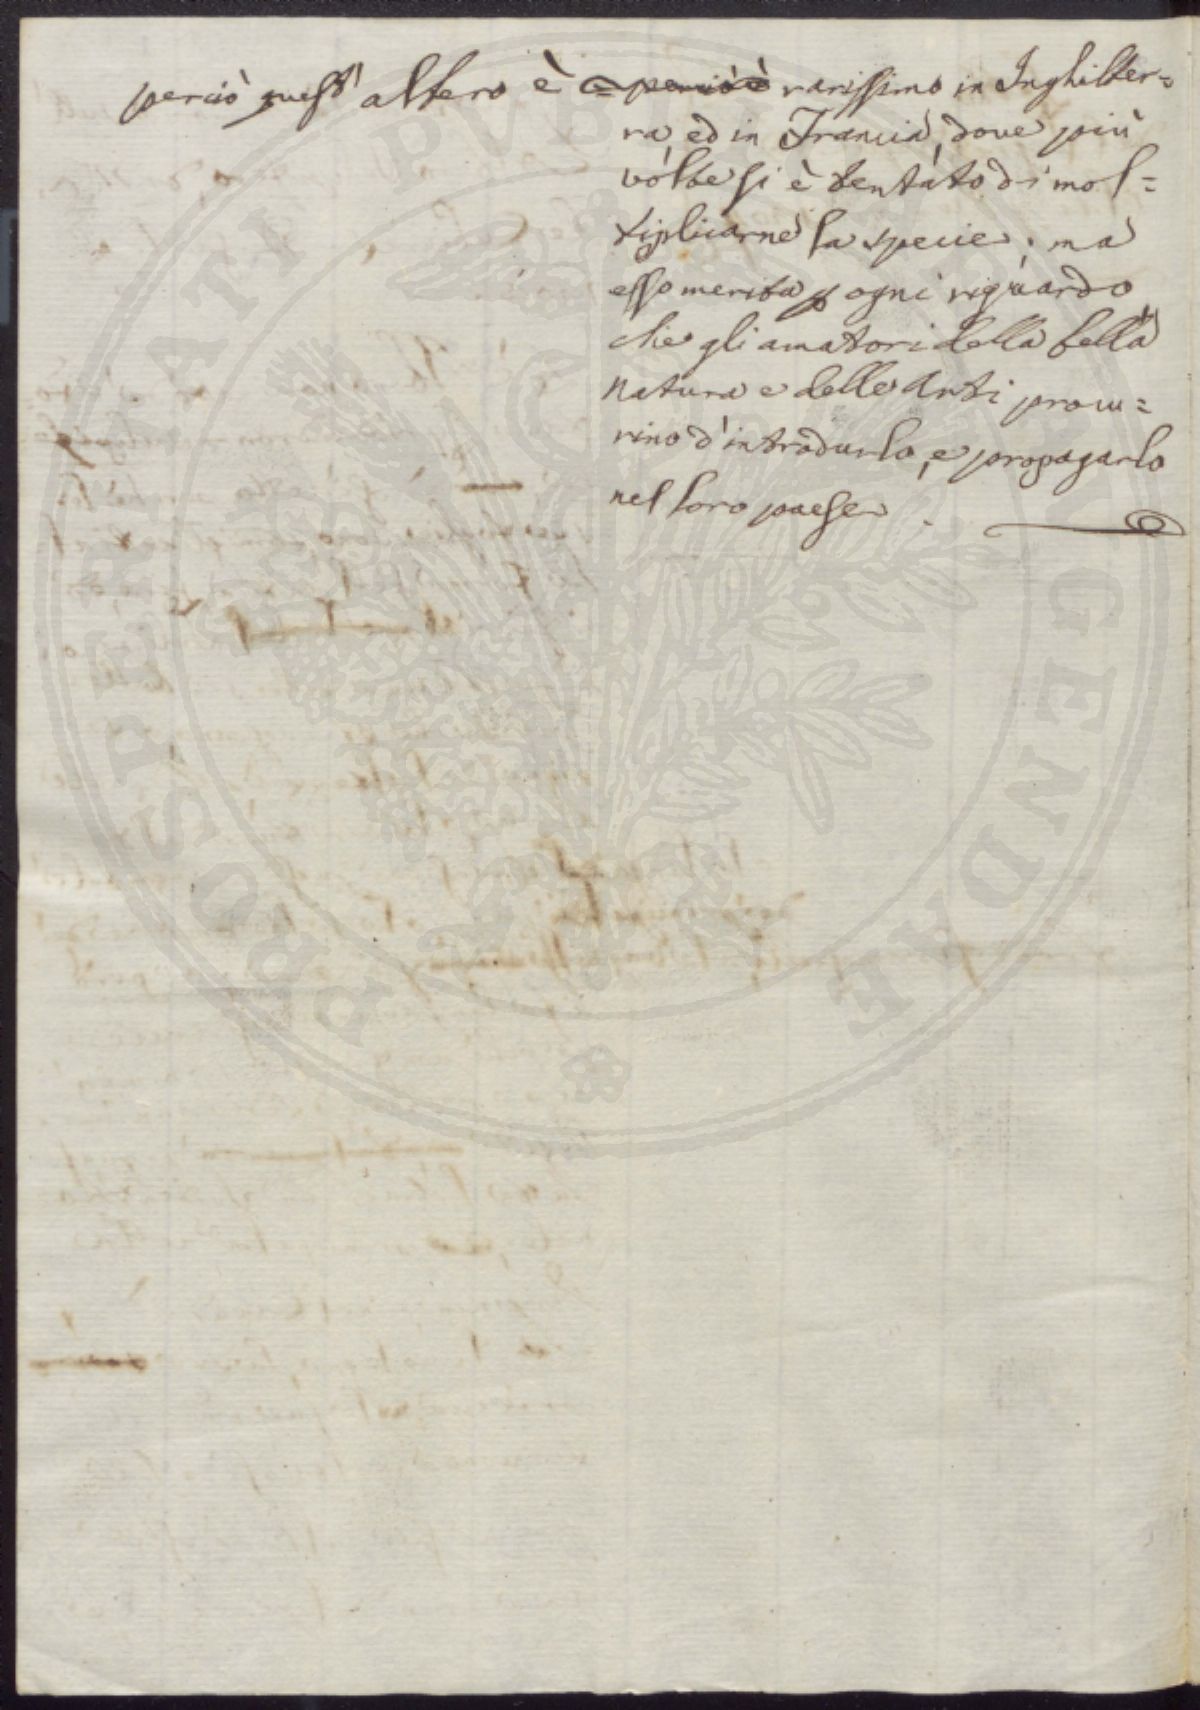 perciò quest' albero è e perciò è rarissimo in Inghilter=
ra, ed in Francia, dove più
volte si è tentato di mol=
tiplicarne la specie; ma
esso merita p ogni riguardo,
che gli amatori della bella
natura e delle Arti procu=
rino d'introdurlo, e propagarlo
nel loro paese.
PROSPERITATI PUBLICAE AUGENDAE